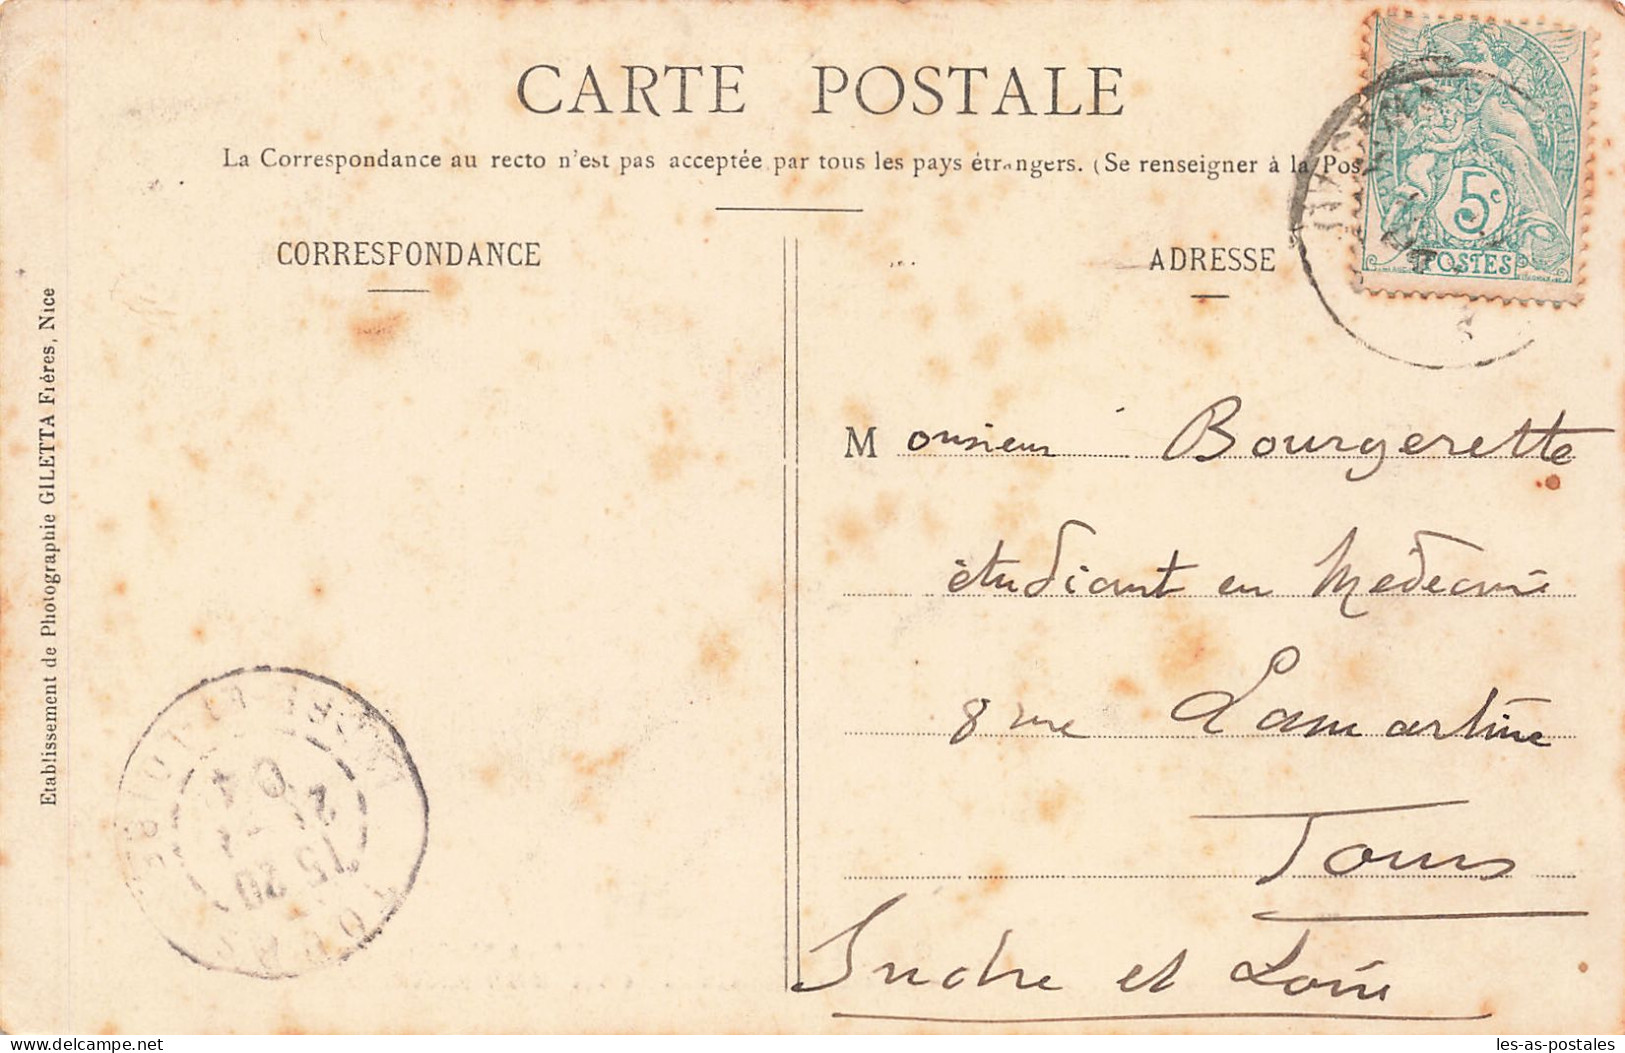 CARTE POSTALE
La Correspondance au recto n'est pas acceptée par tous les pays étrangers. (Se renseigner à la Pos
CORRESPONDANCE
ADRESSE
FRANÇAISE
5c
POSTES
Monsieur Bourgerette
étudiant en Médecine
8 rue Lamartine
Tours
Indre et Loire
Etablissement de Photographie GILETTA Frères, Nice
15 20
04
les-as-postales